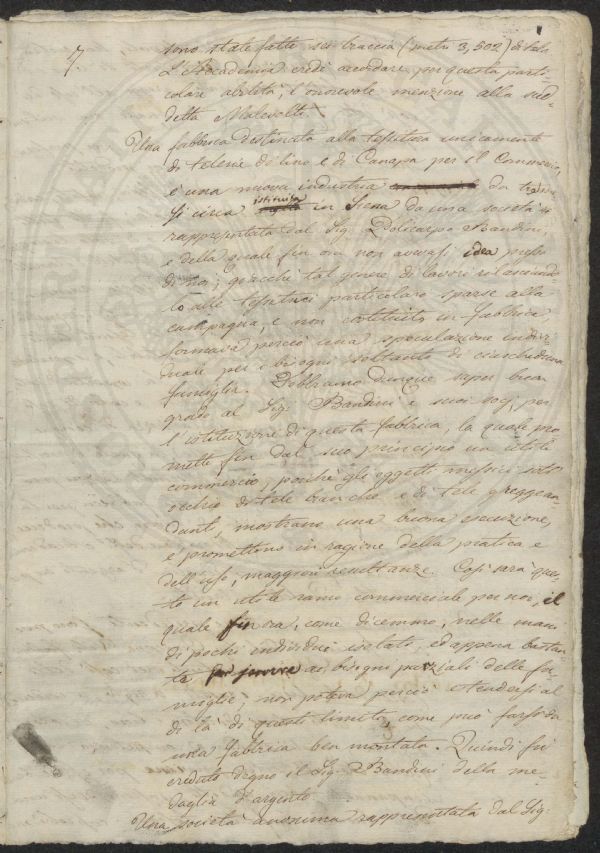 7.
sono state fatte sei braccia (metri 3,502) di tela
L'Accademia credè accordare per questa parti-
colare abilità, l'onorevole menzione alla sud-
detta Malevolti
Una fabbrica destinata alla tessitura unicamente
di telerie di lino e di Canapa per il Commercio,
è una nuova industria da
si circa istituita in Siena da una società
rappresentata dal Sig. Policarpo Bandini,
e della quale fin ora non avevasi idea presso
di noi; giacchè tal genere di lavori rilasciando-
lo alle tessitrici particolari sparse alla
campagna, e non costituito in fabbrica
formava perciò una speculazione indivi-
duale per i bisogni soltanto di ciascheduna
famiglia. Dobbiamo dunque saper buon
grado al Sig. Bandini e suoi socj, per
l'istituzione di questa fabbrica, la quale pro-
mette fin dal suo principio un utile
commercio, poichè gli oggetti messici sott'
occhio di tele bianche e di tele greggie an-
danti, mostrano una buona esecuzione,
e promettono in ragione della pratica e
dell'uso, maggiori resultanze. Così sarà que-
sto un utile ramo commerciale per noi, il
quale finora, come dicemmo, nelle mani
di pochi individui isolati, ed appena bastan-
te ai bisogni parziali delle fa-
miglie, non poteva perciò estendersi al
di là di questi limiti, come può farsi da
una fabbrica ben montata. Quindi fu
creduto degno il Sig. Bandini della me-
daglia d'argento.
Una società anonima rappresentata dal Sig.